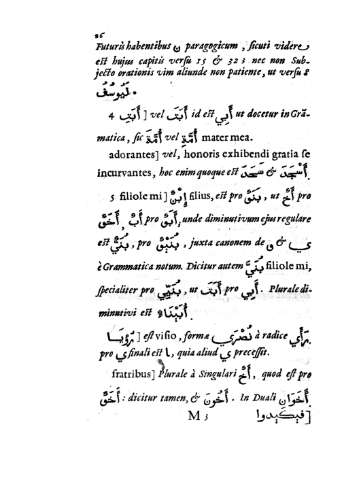 96
Futuris habentibus ن paragogicum, sicuti videre
est hujus capitis versu 15 & 32; nec non Sub-
jecto orationis vim aliunde non patiente, ut versu 8
لَيُوسُفُ.
4 أَبَتِ ] vel أَبَتَ id est أَبِي ut docetur in Grā-
matica, sic أُمَّةِ vel أُمَّةَ mater mea.
adorantes] vel, honoris exhibendi gratia se
incurvantes, hoc enim quoque est سَجَدَ & أَسْجَدَ.
5 filiole mi] اِبْنٌ filius, est pro بَنَوٌ, ut أَخٌ pro
أَخَوٌ, أَبٌ pro أَبَوٌ, unde diminutivum ejus regulare
est بُنَيٌّ, pro بُنَيْوٌ, juxta canonem de و & ي
è Grammatica notum. Dicitur autem بُنَيَّ filiole mi,
specialiter pro بُنَيِّي, ut أَبَتِ pro أَبِي. Plurale di-
minutivi est أُبَيْنَاء.
رُؤْيَا] est visio, forma نُصْرَى à radice رَأَى,
pro ي finali est ا, quia aliud ي precessit.
fratribus] Plurale à Singulari أَخٌ, quod est pro
أَخَوٌ: dicitur tamen, & أَخُونَ. In Duali أَخَوَانِ.
M 3 فَيَكِيدُوا]